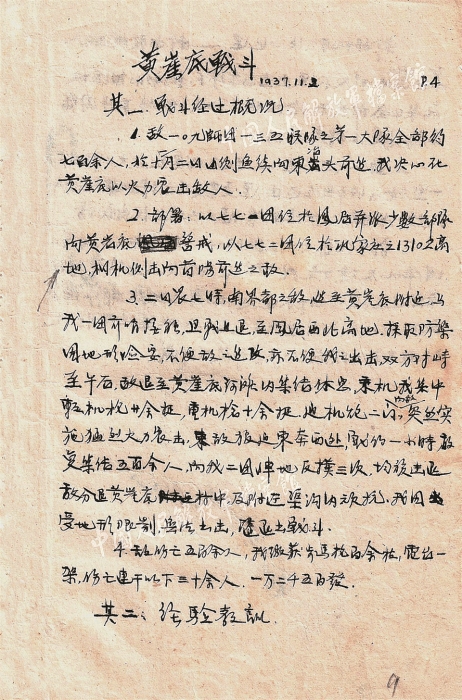 黄崖底战斗 1937.11.2 P.4
其一、战斗经过概况
1.敌一〇九师团一三五联队之第一大队全部约
七百余人,于十一月二日由 向东 头前进,我决心在
黄崖底以火力袭击敌人。
2.部署:以七七一团位于凤居并派少数部队
向黄崖底 警戒,以七七二团位于巩家庄之1310之高
地,相机侧击向前进之敌。
3.二日晨七时南界都之敌进至黄崖底附近,与
我一团前哨接触,且战且退至凤居西北高地,
因地形险要,不便敌之进攻,亦不便我之出击,双方对峙
至午后,敌退至黄崖底河滩内集结休息,乘机我集中
轻机枪廿余挺,重机枪十余挺,迫机炮二 向敌突然实
施猛烈火力袭击, 敌狼 东奔西跑,战约一小时敌
复集结五百余人,向我二团阵地反扑三次,均被击退
敌分退黄崖底 村中及附近渠沟内顽抗,我因
受地形限制,无法出击, 退出战斗。
4.敌伤亡五百余人,我缴获 马枪百余枝,电台一
架,伤亡连干以下三十余人.一万二千五百发.
其二:经验教训
9